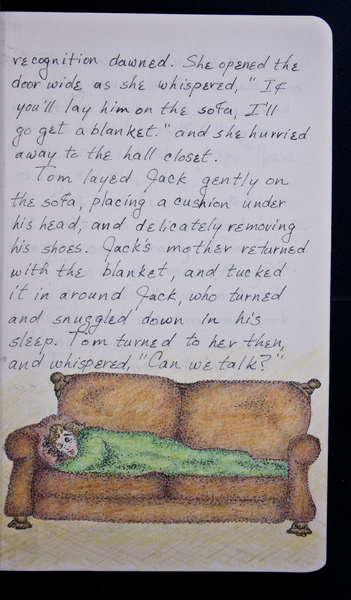 recognition dawned. She opened the
door wide as she whispered, "If
you'll lay him on the sofa, I'll
go get a blanket." and she hurried
away to the hall closet.
Tom layed Jack gently on
the sofa, placing a cushion under
his head, and delicately removing
his shoes. Jack's mother returned
with the blanket, and tucked
it in around Jack, who turned
and snuggled down in his
sleep. Tom turned to her then,
and whispered, "Can we talk?"